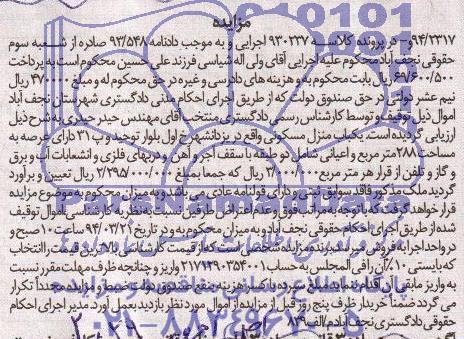 مزایده
۹۴/۲۳۱۷و- در پرونده کلاسه ۹۳۰۲۳۷ اجرایی و به موجب دادنامه ۹۳/۵۴۸ صادره از شعبه سوم
حقوقی نجف آباد محکوم علیه اجرایی آقای ولی اله شیاسی فرزند علی حسین محکوم است به پرداخت
۶۹/۶۰۰/۵۰۰ ریال بابت محکوم به و هزینه های دادرسی و غیره در حق محکوم له و مبلغ ۴۷۰۰۰۰ ریال
نیم عشر دولتی در حق صندوق دولت که از طریق اجرای احکام مدنی دادگستری شهرستان نجف آباد
اموال ذیل توقیف و توسط کارشناس رسمی دادگستری منتخب آقای مهندس حیدر حیدری به شرح ذیل
ارزیابی گردیده است. یکباب منزل مسکونی واقع در یزدانشهر خ اول بلوار توحید پ ۳۱ دارای عرصه به
مساحت ۲۸۸ متر مربع و اعیانی شامل دو طبقه با سقف آجر و آهن و دربهای فلزی و انشعابات آب و برق
و گاز و تلفن از قرار هر متر مربع ۳/۰۰۰/۰۰۰ ریال که جمعا مبلغ ۲/۳۹۵/۰۰۰/۰۰۰ ریال تعیین و برآورد
گردید ملک مذکور فاقد سوابق ثبتی و دارای قولنامه عادی می باشد و به میزان محکوم به موضوع مزایده
قرار خواهد گرفت که با توجه به مراتب فوق و عدم اعتراض طرفین نسبت به نظریه کارشناسی اموال توقیف
شده از طریق اجرای احکام حقوقی نجف آباد به میزان محکوم به و در تاریخ ۹۴/۰۳/۲۱ ساعت ۱۰ صبح و
در واحد اجرا به فروش میرسد برنده مزایده شخصی است که از قیمت کارشناسی بالاترین قیمت را انتخاب
که بایستی ۱۰٪ آن را فی المجلس به حساب ۲۱۷۱۲۹۰۳۵۴۰۰۱ واریز و چنانچه ظرف مهلت مقرر نسبت
به واریز مابقی آن اقدام ننماید مبلغ سپرده با کسر هزینه منفع صندوق دولت ضبط و مزایده مجدداً تکرار
می گردد ضمناً خریدار ظرف پنج روز قبل از مزایده از اموال مورد نظر بازدید بعمل آورد. مدیر اجرای احکام
حقوقی دادگستری نجف آباد م الف ۸۲۹
ParsNamadData
۰۲۱-۸۸۳۴۹۶۷۰-۵